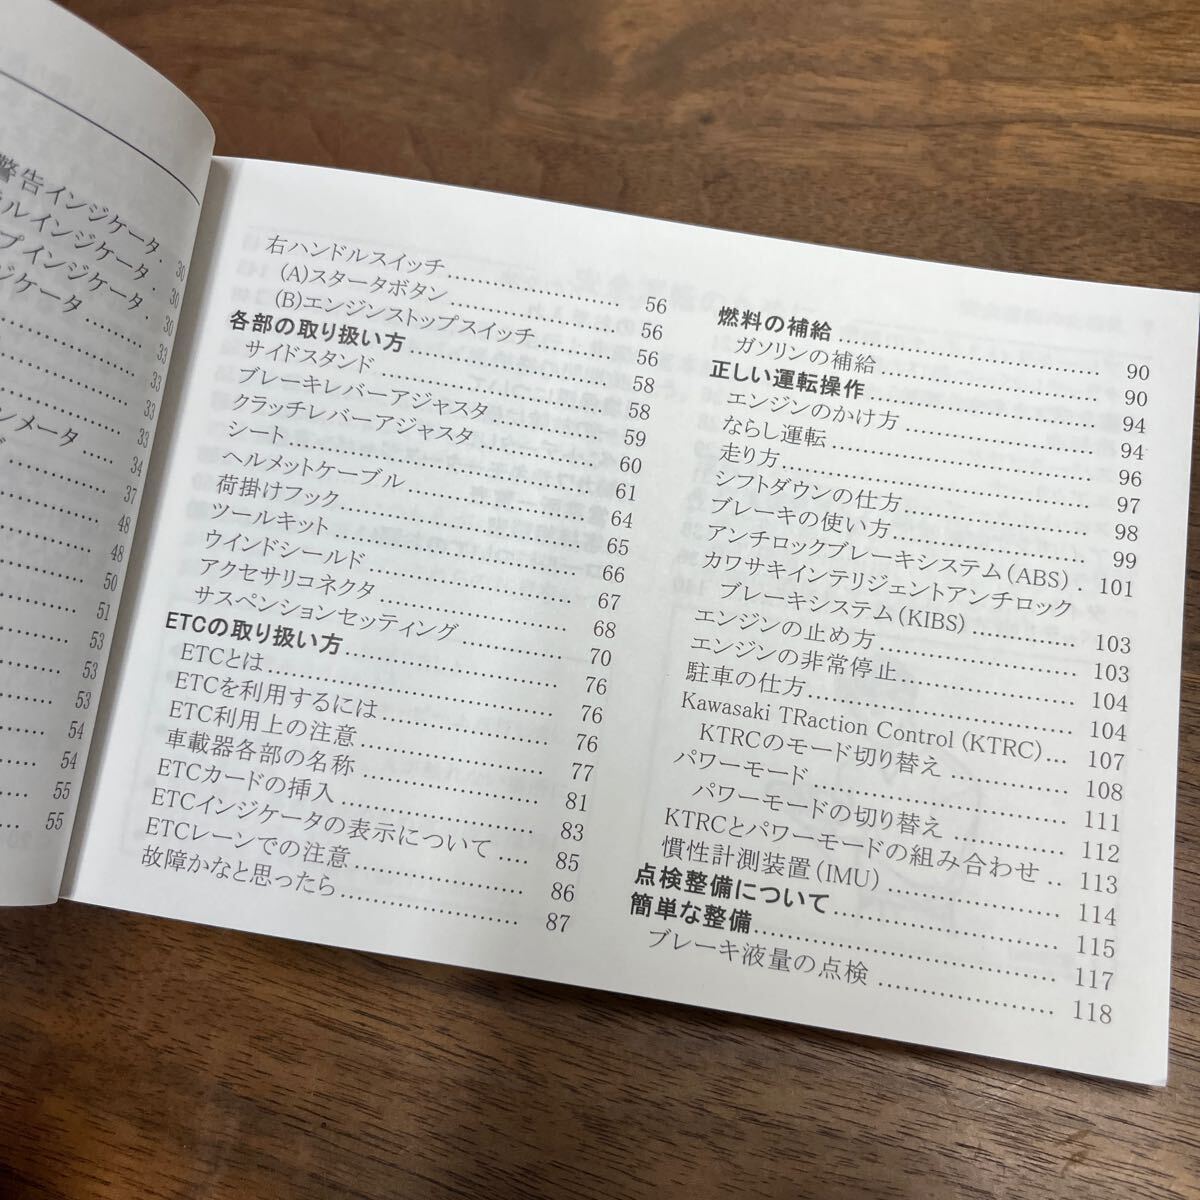 警告インジケータ. 30
ルインジケータ. 30
プインジケータ. 30
ジケータ 33
33
33
33
ンメータ 34
37
48
48
50
51
53
53
53
54
54
55
55
右ハンドルスイッチ 56
(A)スタータボタン 56
(B)エンジンストップスイッチ 56
各部の取り扱い方 58
サイドスタンド 58
ブレーキレバーアジャスタ 59
クラッチレバーアジャスタ 60
シート 61
ヘルメットケーブル 64
荷掛けフック 65
ツールキット 66
ウインドシールド 67
アクセサリコネクタ 68
サスペンションセッティング 70
ETCの取り扱い方 76
ETCとは 76
ETCを利用するには 76
ETC利用上の注意 77
車載器各部の名称 81
ETCカードの挿入 83
ETCインジケータの表示について 85
ETCレーンでの注意 86
故障かなと思ったら 87
燃料の補給 90
ガソリンの補給 90
正しい運転操作 94
エンジンのかけ方 94
ならし運転 96
走り方 97
シフトダウンの仕方 98
ブレーキの使い方 99
アンチロックブレーキシステム(ABS) . 101
カワサキインテリジェントアンチロック
ブレーキシステム(KIBS) 103
エンジンの止め方 103
エンジンの非常停止 104
駐車の仕方 104
Kawasaki TRaction Control (KTRC)... 107
KTRCのモード切り替え 108
パワーモード 111
パワーモードの切り替え 112
KTRCとパワーモードの組み合わせ .. 113
慣性計測装置(IMU) 114
点検整備について 115
簡単な整備 117
ブレーキ液量の点検 118